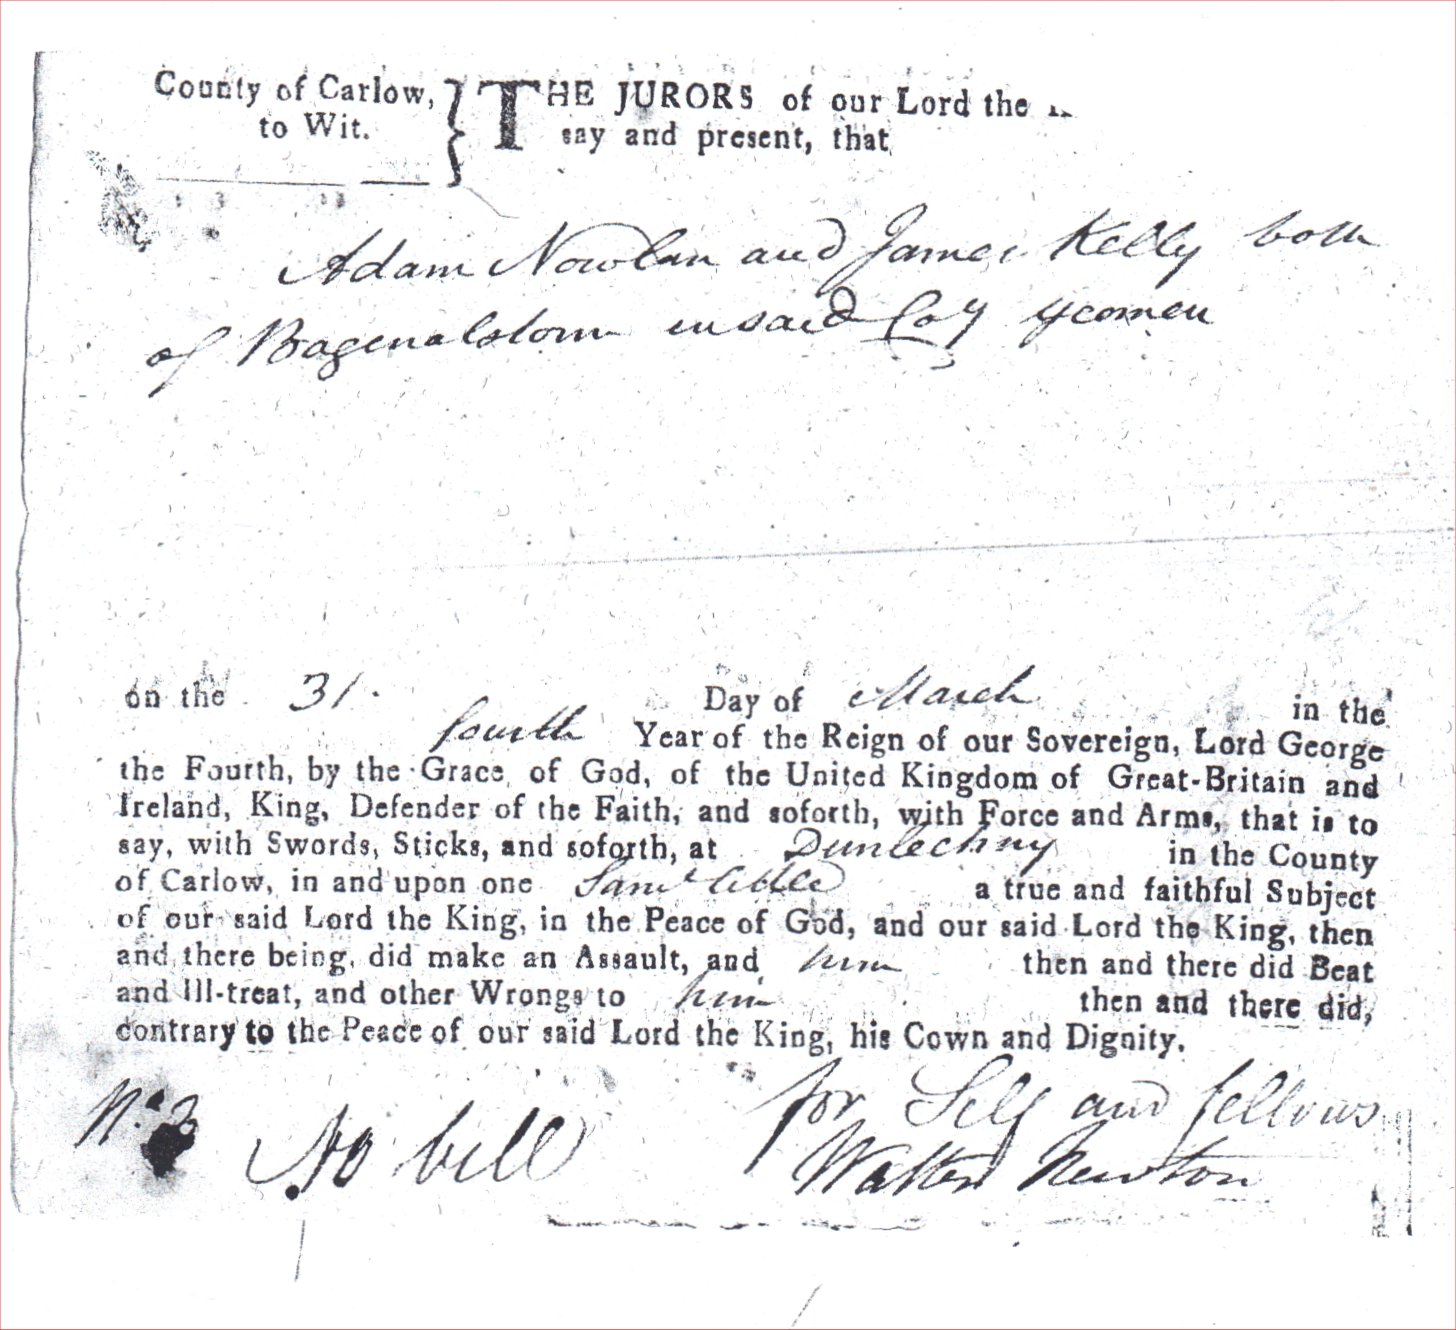 County of Carlow,
to Wit.
THE JURORS of our Lord the
say and present, that
Adam Nowlan and James Kelly both
of Bagenalstown in said Coy yeomen
on the 31. Day of March in the
fourth Year of the Reign of our Sovereign, Lord George
the Fourth, by the Grace of God, of the United Kingdom of Great-Britain and
Ireland, King, Defender of the Faith, and soforth, with Force and Arms, that is to
say, with Swords, Sticks, and soforth, at Dunleckny in the County
of Carlow, in and upon one Saml a true and faithful Subject
of our said Lord the King, in the Peace of God, and our said Lord the King, then
and there being, did make an Assault, and him then and there did Beat
and Ill-treat, and other Wrongs to him then and there did,
contrary to the Peace of our said Lord the King, his Cown and Dignity.
No. 3
No bill
for Self and fellows
Walter Newton